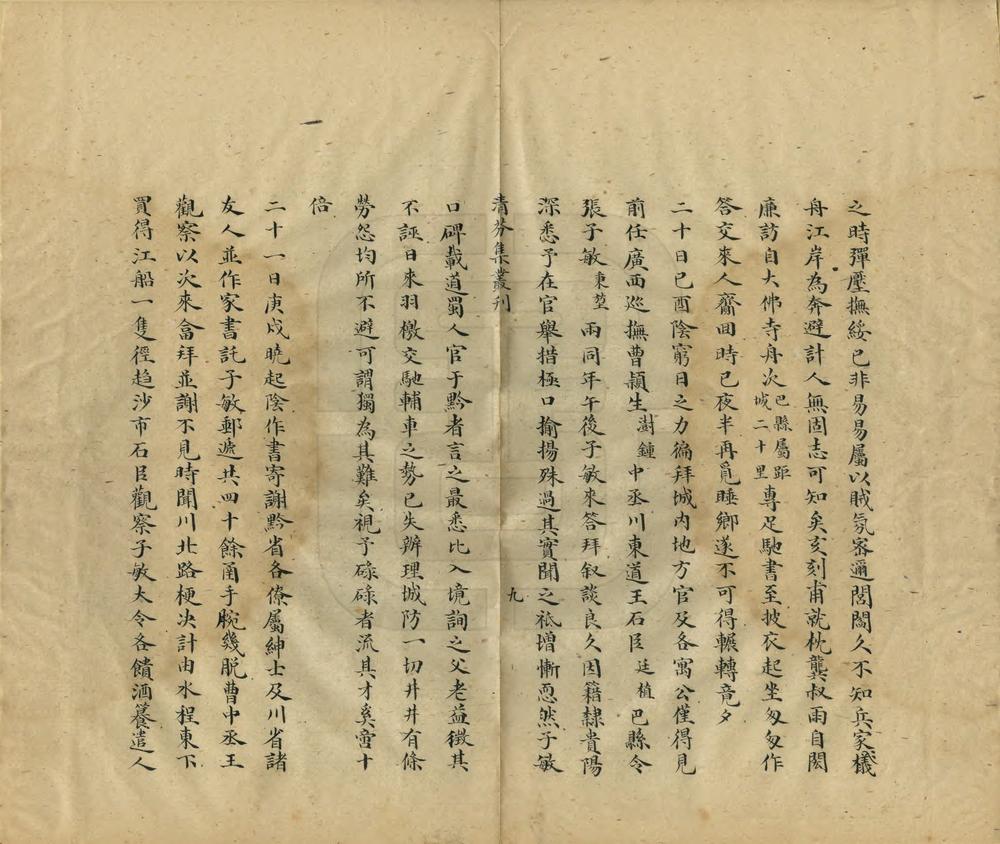 之時彈壓撫綏已非易易屬以賊氛密邇閭閻久不知兵家檥
舟江岸為奔避計人無固志可知矣亥刻甫就枕龔叔雨自閎
廉訪自大佛寺舟次巴縣屬距城二十里專足馳書至披衣起坐匆匆作
答交來人齎回時已夜半再覓睡鄉遂不可得輾轉竟夕
二十日己酉陰窮日之力徧拜城內地方官及各寓公僅得見
前任廣西巡撫曹穎生澍鍾中丞川東道王石臣廷植巴縣令
張子敏秉堃兩同年午後子敏來答拜叙談良久因籍隸貴陽
深悉予在官舉措極口揄揚殊過其實聞之祇增慚恧然子敏
清芬集叢刊
九
口碑載道蜀人官于黔者言之最悉比入境詢之父老益徵其
不誣日來羽檄交馳輔車之勢已失辦理城防一切井井有條
勞怨均所不避可謂獨為其難矣視予碌碌者流其才奚啻十
倍
二十一日庚戌曉起陰作書寄謝黔省各僚屬紳士及川省諸
友人並作家書託子敏郵遞共四十餘函手腕幾脫曹中丞王
觀察以次來畣拜並謝不見時聞川北路梗決計由水程東下
買得江船一隻徑趋沙市石臣觀察子敏大令各饋酒饔遣人